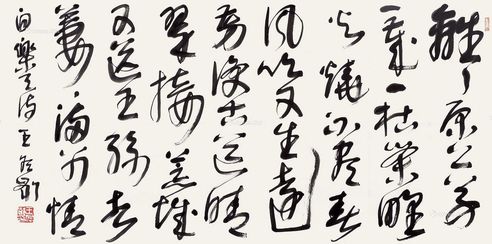 離々原上草
一歲一枯榮野
火燒不盡春
風吹又生遠
芳侵古道晴
翠接荒城
又送王孫去
萋々滿別情
白樂天詩 王冬齡